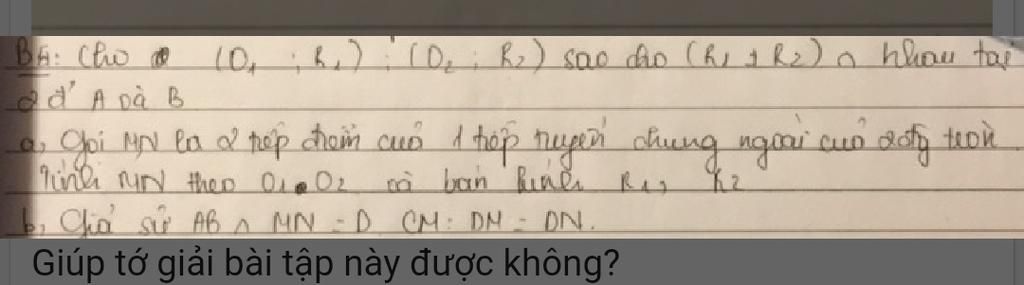 B4: Cho (O₁ ; R₁) ; (O₂ ; R₂) sao cho (R₁ ≠ R₂) ∩ nhau tại
2 đ' A và B
a, Gọi MN là 2 tiếp điểm cuả 1 tiếp tuyến chung ngoài cuả 2 đg tròn
Tính MN theo O₁O₂ và bán kính R₁, R₂
b, Giả sử AB ∩ MN = D CM: DM = DN.
Giúp tớ giải bài tập này được không?